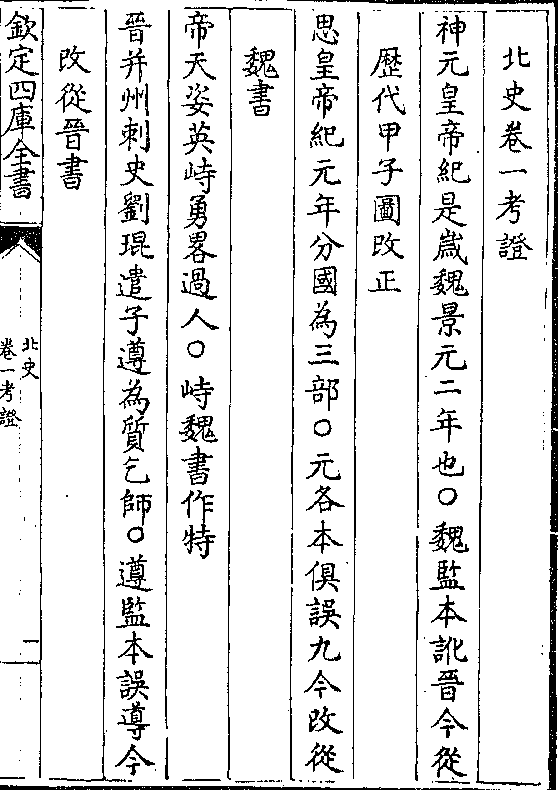 北史卷一考證
神元皇帝紀是歲魏景元二年也○魏監本訛晉今從
歷代甲子圖改正
思皇帝紀元年分國為三部○元各本俱誤九今改從
魏書
帝天姿英峙勇畧過人○峙魏書作特
晉并州刺史劉琨遣子遵為質乞師○遵監本誤導今
改從晉書
欽定四庫全書
北史
卷一考證
一